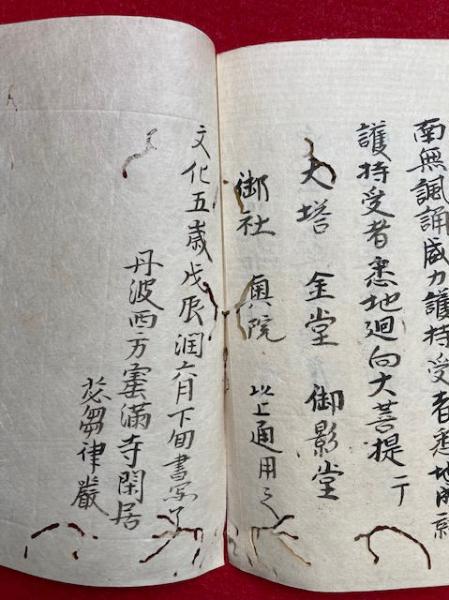 南無諷誦威力護持受者悉地成就
護持受者悉地廻向大菩提 丁
大塔 金堂 御影堂
御社 奥院 以上通用之
文化五歳戊辰潤六月下旬書写了
丹波西満寺閑居
苾芻律巌